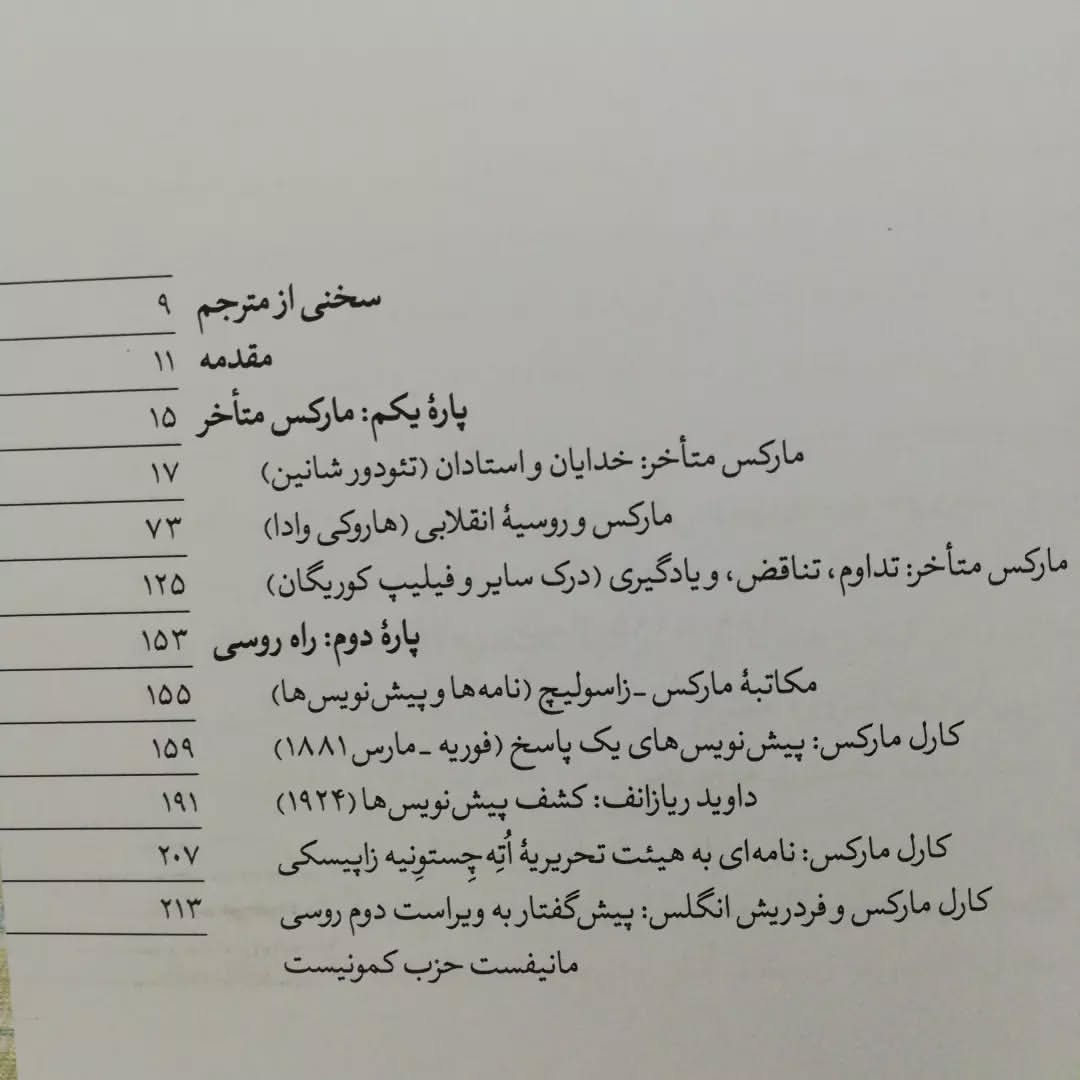 سخنی از مترجم ۹
مقدمه ۱۱
پارهٔ یکم: مارکس متأخر ۱۵
مارکس متأخر: خدایان و استادان (تئودور شانین) ۱۷
مارکس و روسیهٔ انقلابی (هاروکی وادا) ۷۳
مارکس متأخر: تداوم، تناقض، و یادگیری (درک سایر و فیلیپ کوریگان) ۱۲۵
پارهٔ دوم: راه روسی ۱۵۳
مکاتبهٔ مارکس ـ زاسولیچ (نامه‌ها و پیش‌نویس‌ها) ۱۵۵
کارل مارکس: پیش‌نویس‌های یک پاسخ (فوریه ـ مارس ۱۸۸۱) ۱۵۹
داوید ریازانف: کشف پیش‌نویس‌ها (۱۹۲۴) ۱۹۱
کارل مارکس: نامه‌ای به هیئت تحریریهٔ اُتِه چِستونِیه زاپیسکی ۲۰۷
کارل مارکس و فردریش انگلس: پیش‌گفتار به ویراست دوم روسی ۲۱۳
مانیفست حزب کمونیست